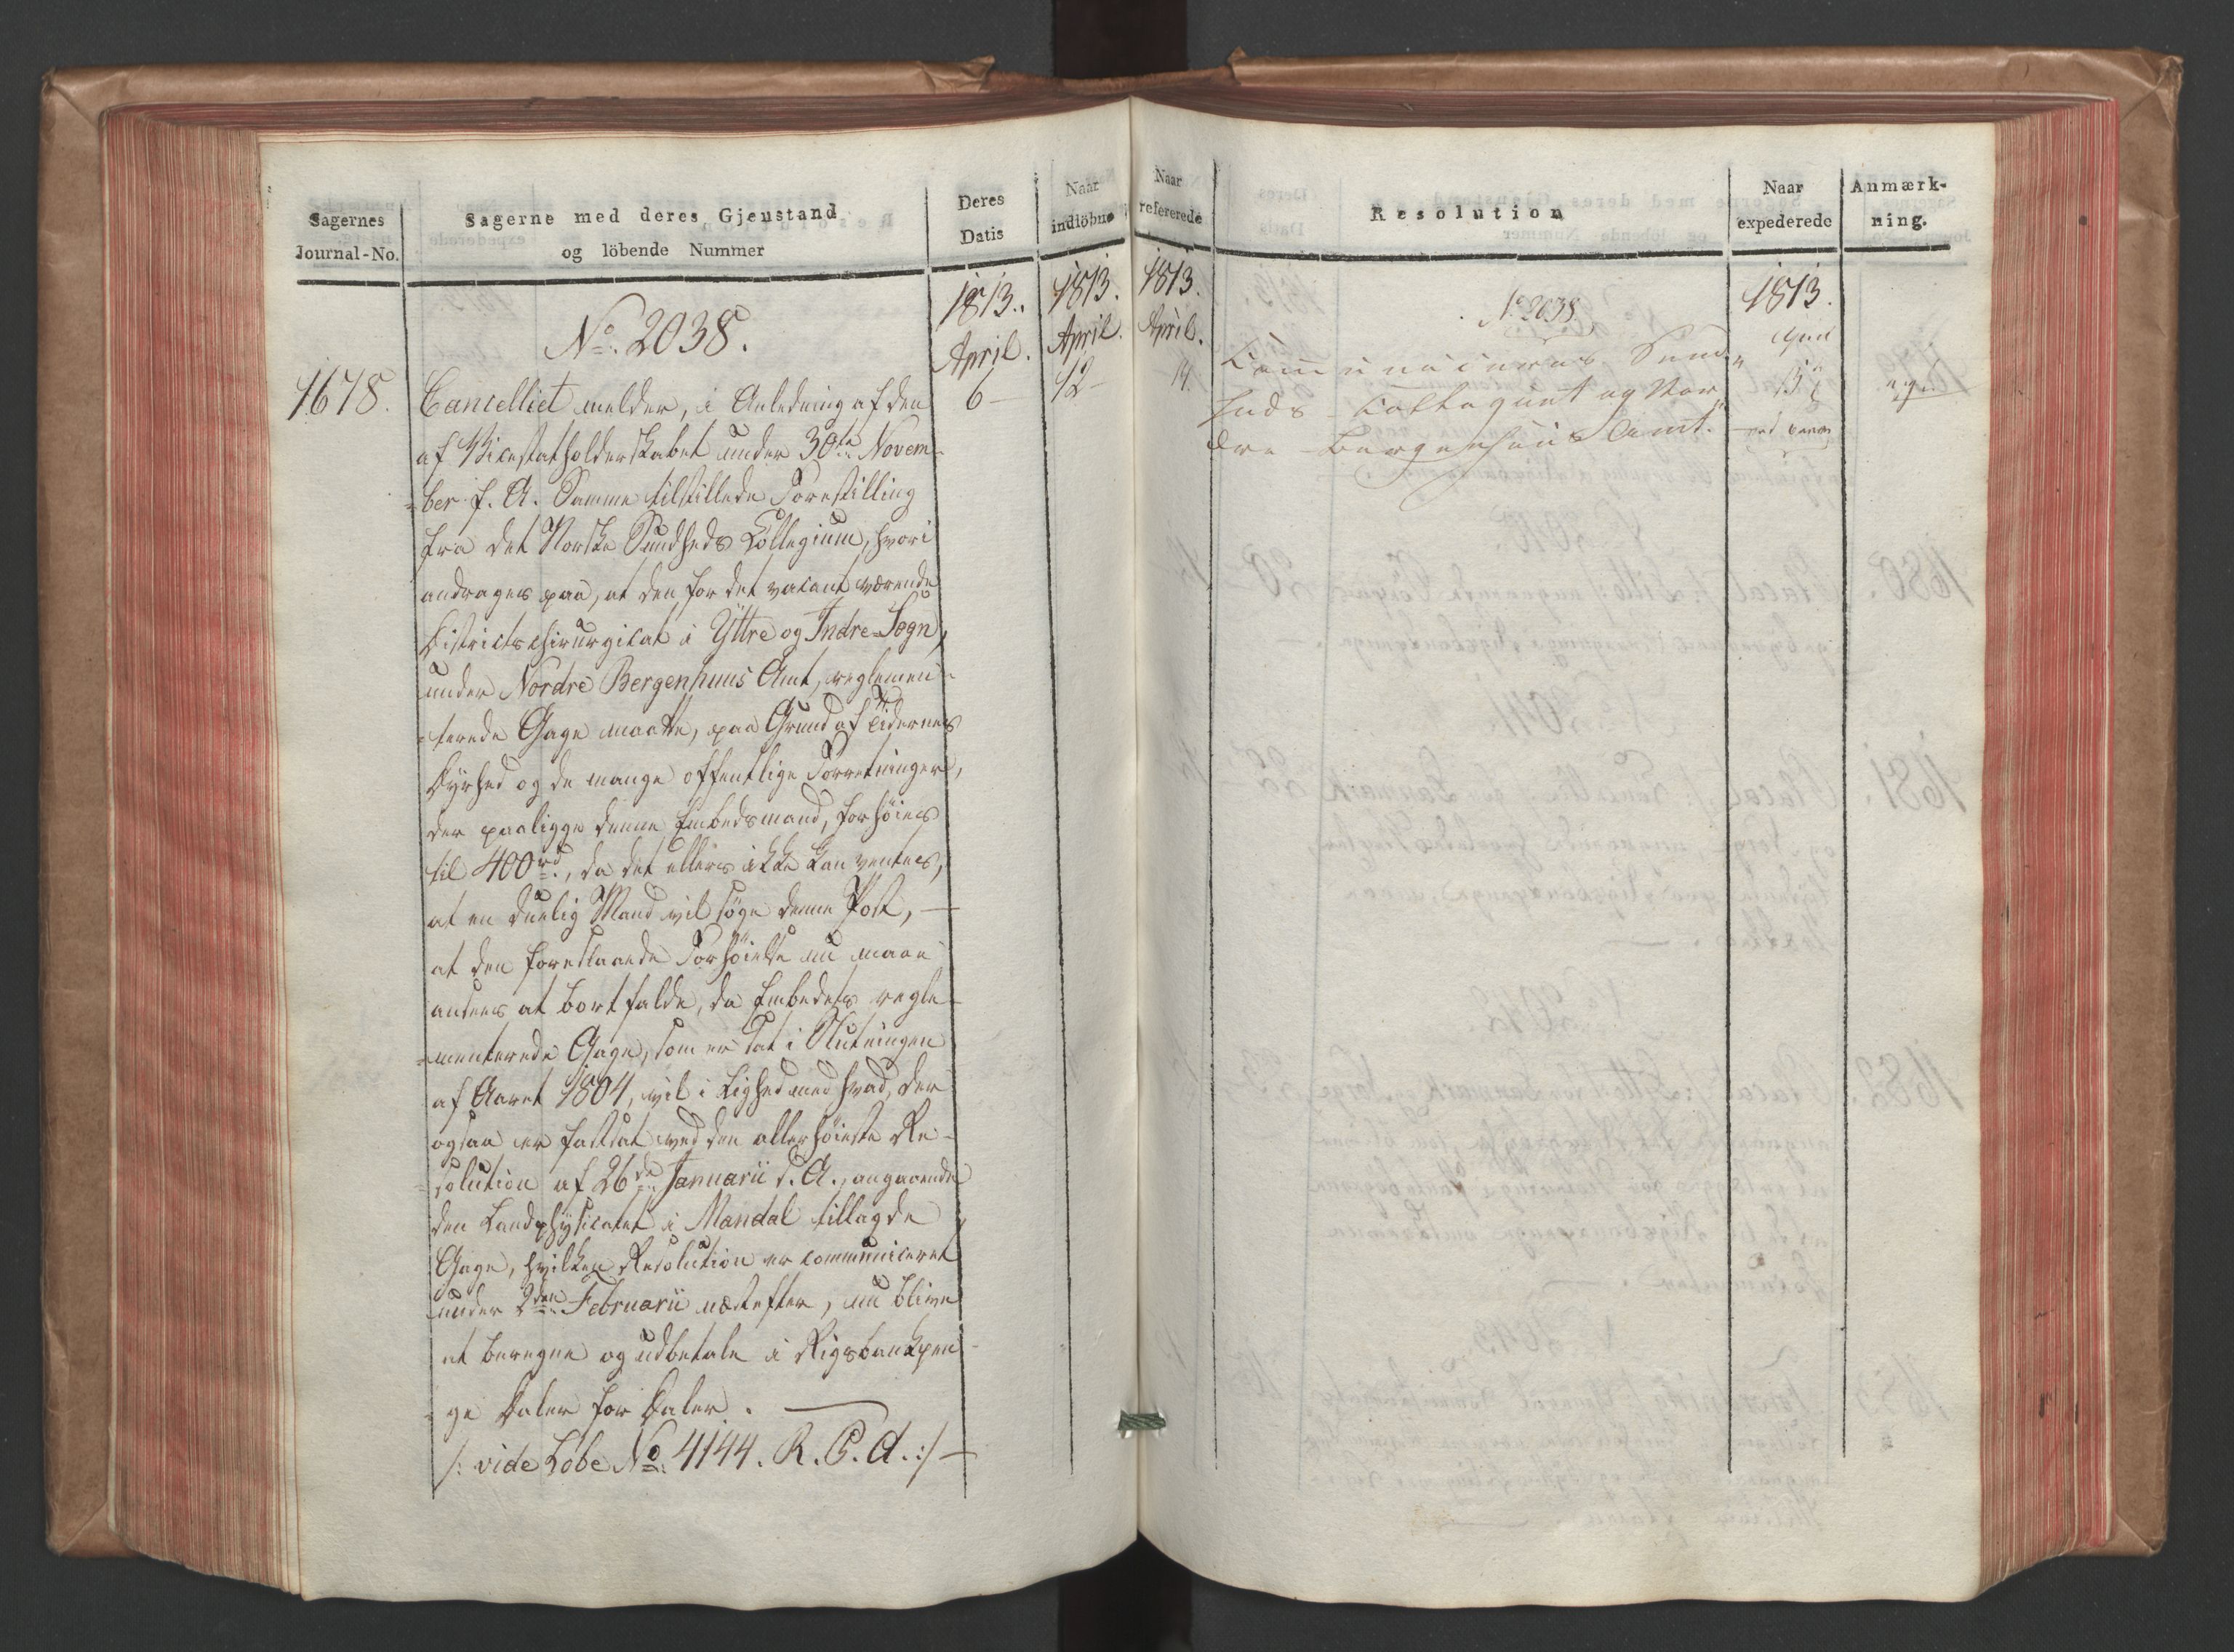 Sagernes
Journal-No.
Sagerne med deres Gjenstand
og löbende Nummer
Deres
Datis
Naar
indlöbne
1813.
April.
1813.
April.
No. 2038.
1678.
6 —
12 —
Cancelliet melder, i Anledning af den
af Vicestatholderskabet under 30te Novem-
=ber f. A. Samme tilstillede Forestilling
fra det Norske Sundheds Collegium, hvori
andrages paa, at den for det vacant værende
Districtschirurgicat i Yttre og Indre Sogn,
under Nordre Bergenhuus Amt, reglemen-
=terede Gage maatte, paa Grund af Tidernes
Dyrhed og de mange offentlige Forretninger,
der paaligge denne Embedsmand, forhöies
til 400 rd., da det ellers ikke kan ventes,
at en duelig Mand vil söge denne Post, —
at den foreslaaede Forhöielse nu maae
ansees at bortfalde, da Embedets regle-
=menterede Gage, som er sat i Slutningen
af Aaret 1804, vil i Lighed med hvad, der
ogsaa er fastsat ved den allerhöieste Re-
=solution af 26de Januarii d. A., angaaende
den Landphysicatet i Mandal tillagde
Gage, hvilken Resolution er communiceret
under 2den Februarii næstefter, nu blive
at beregne og udbetale i Rigsbankpen-
=ge Daler for Daler. —
/: vide Löbe No. 4144. R. P. A. :/ —
Naar
refererede
Resolution
Naar
expederede
Anmærk-
ning.
1813.
April.
14.
No 2038
1813.
April
Communiceres Sund-
heds Collegiet og Nor-
dre Bergenhuus Amt.